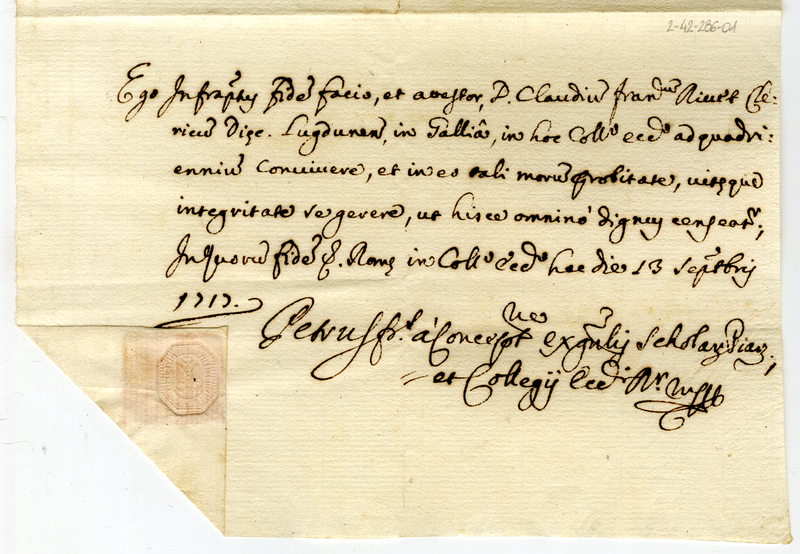 2-42-286-01
Ego Infrap̃tus fidẽ facio, et attestor, D. Claudiũ Franᶜᵘᵐ Riuet Cle:
ricũ Diȩc. Lugdunens̃, in Galliâ, in hoc Collº eccº ad quadri:
enniũ Convivere, et in eo tali morũ probitate, uitȩque
integritate se gerere, ut hisce omninò dignus censeatʳ;
In quorũ fidẽ &. Romȩ in Collº Eccº hac die 13 Septẽbris
1717.
Petrus frˢ à Concepᵗⁿᵉ exgñlis Scholar̃ Piar̃,
et Collegij Eccⁱ Rʳ